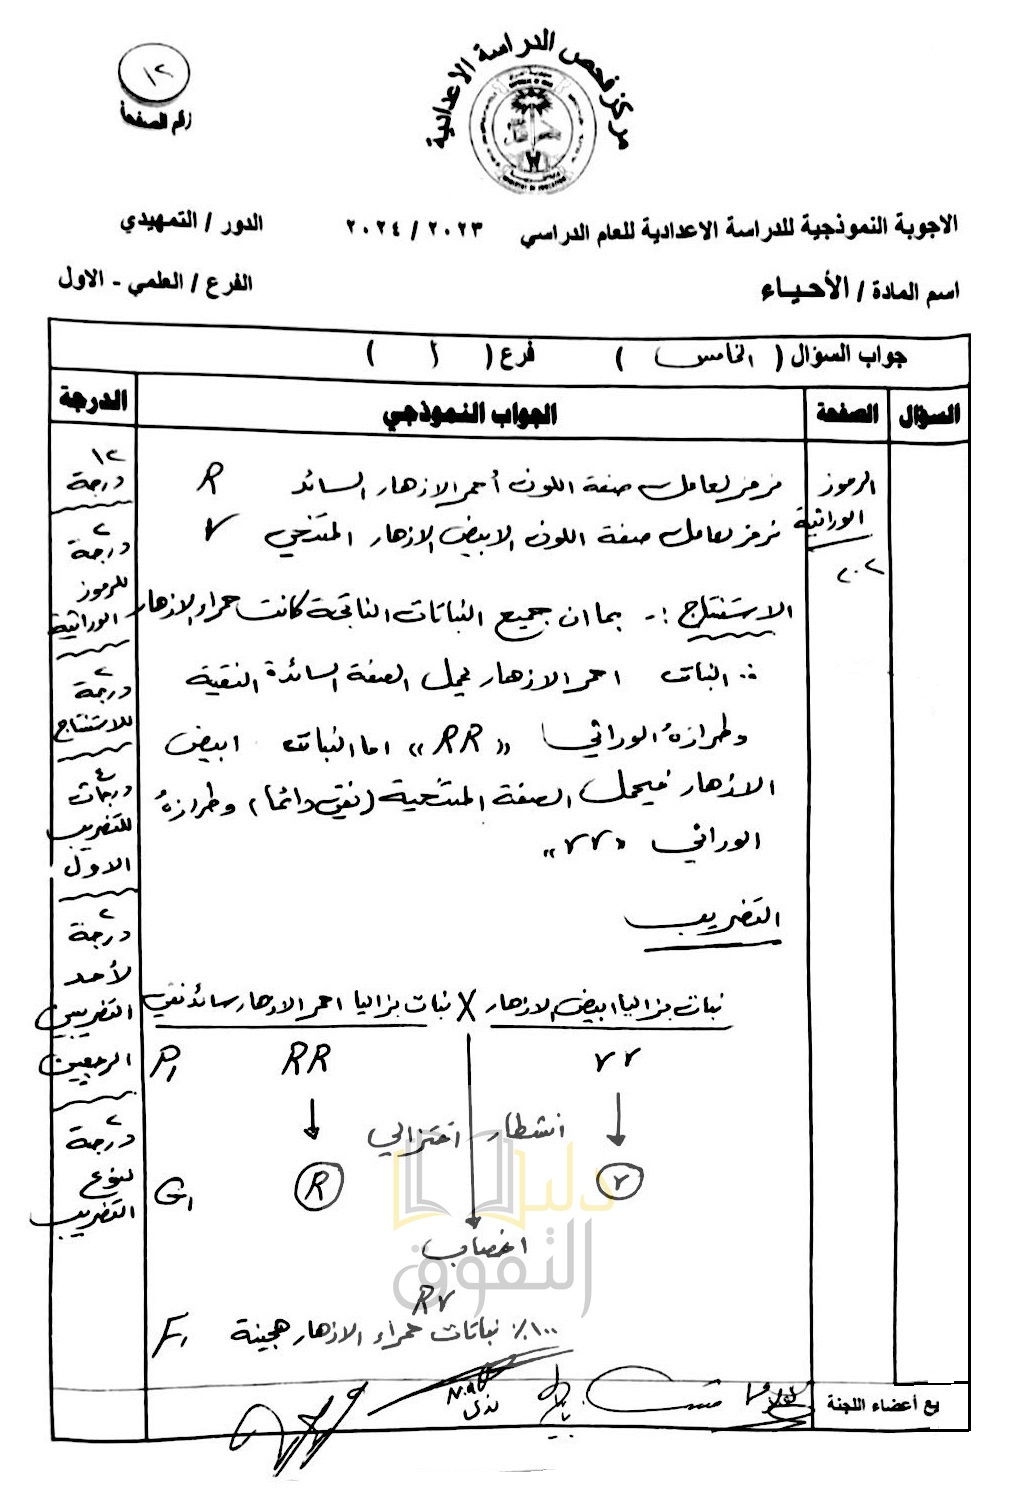 ١٢
رقم الصفحة
مركز فحص الدراسة الاعدادية
الاجوبة النموذجية للدراسة الاعدادية للعام الدراسي ٢٠٢٣ / ٢٠٢٤ الدور / التمهيدي
اسم المادة / الأحياء الفرع / العلمي - الاول
جواب السؤال ( الخامس ) فرع ( أ )
السؤال الصفحة الجواب النموذجي الدرجة
الرموز الوراثية
٢٠٢
نرمز لعامل صفة اللون أحمر الازهار السائد R
نرمز لعامل صفة اللون الابيض الازهار المتنحي r
الاستنتاج :- بما ان جميع النباتات الناتجة كانت حمراء الازهار
∴ النبات احمر الازهار يحمل الصفة السائدة النقية
وطرازهُ الوراثي «RR» اما النبات ابيض
الازهار فيحمل الصفة المتنحية (نقي دائما) وطرازهُ
الوراثي «rr»
التضريب
نبات بزاليا ابيض الازهار X نبات بزاليا احمر الازهار سائد نقي
rr RR P1
انشطار اختزالي
r R G1
اخصاب
Rr
١٠٠٪ نباتات حمراء الازهار هجينة F1
١٢
درجة
٢
درجة
للرموز
الوراثية
٢
درجة
للاستنتاج
٤
درجات
للتضريب
الاول
٢
درجة
لأحد
التضريبين
الرجعيين
٢
درجة
لنوع
التضريب
دليل
التفوق
يع أعضاء اللجنة